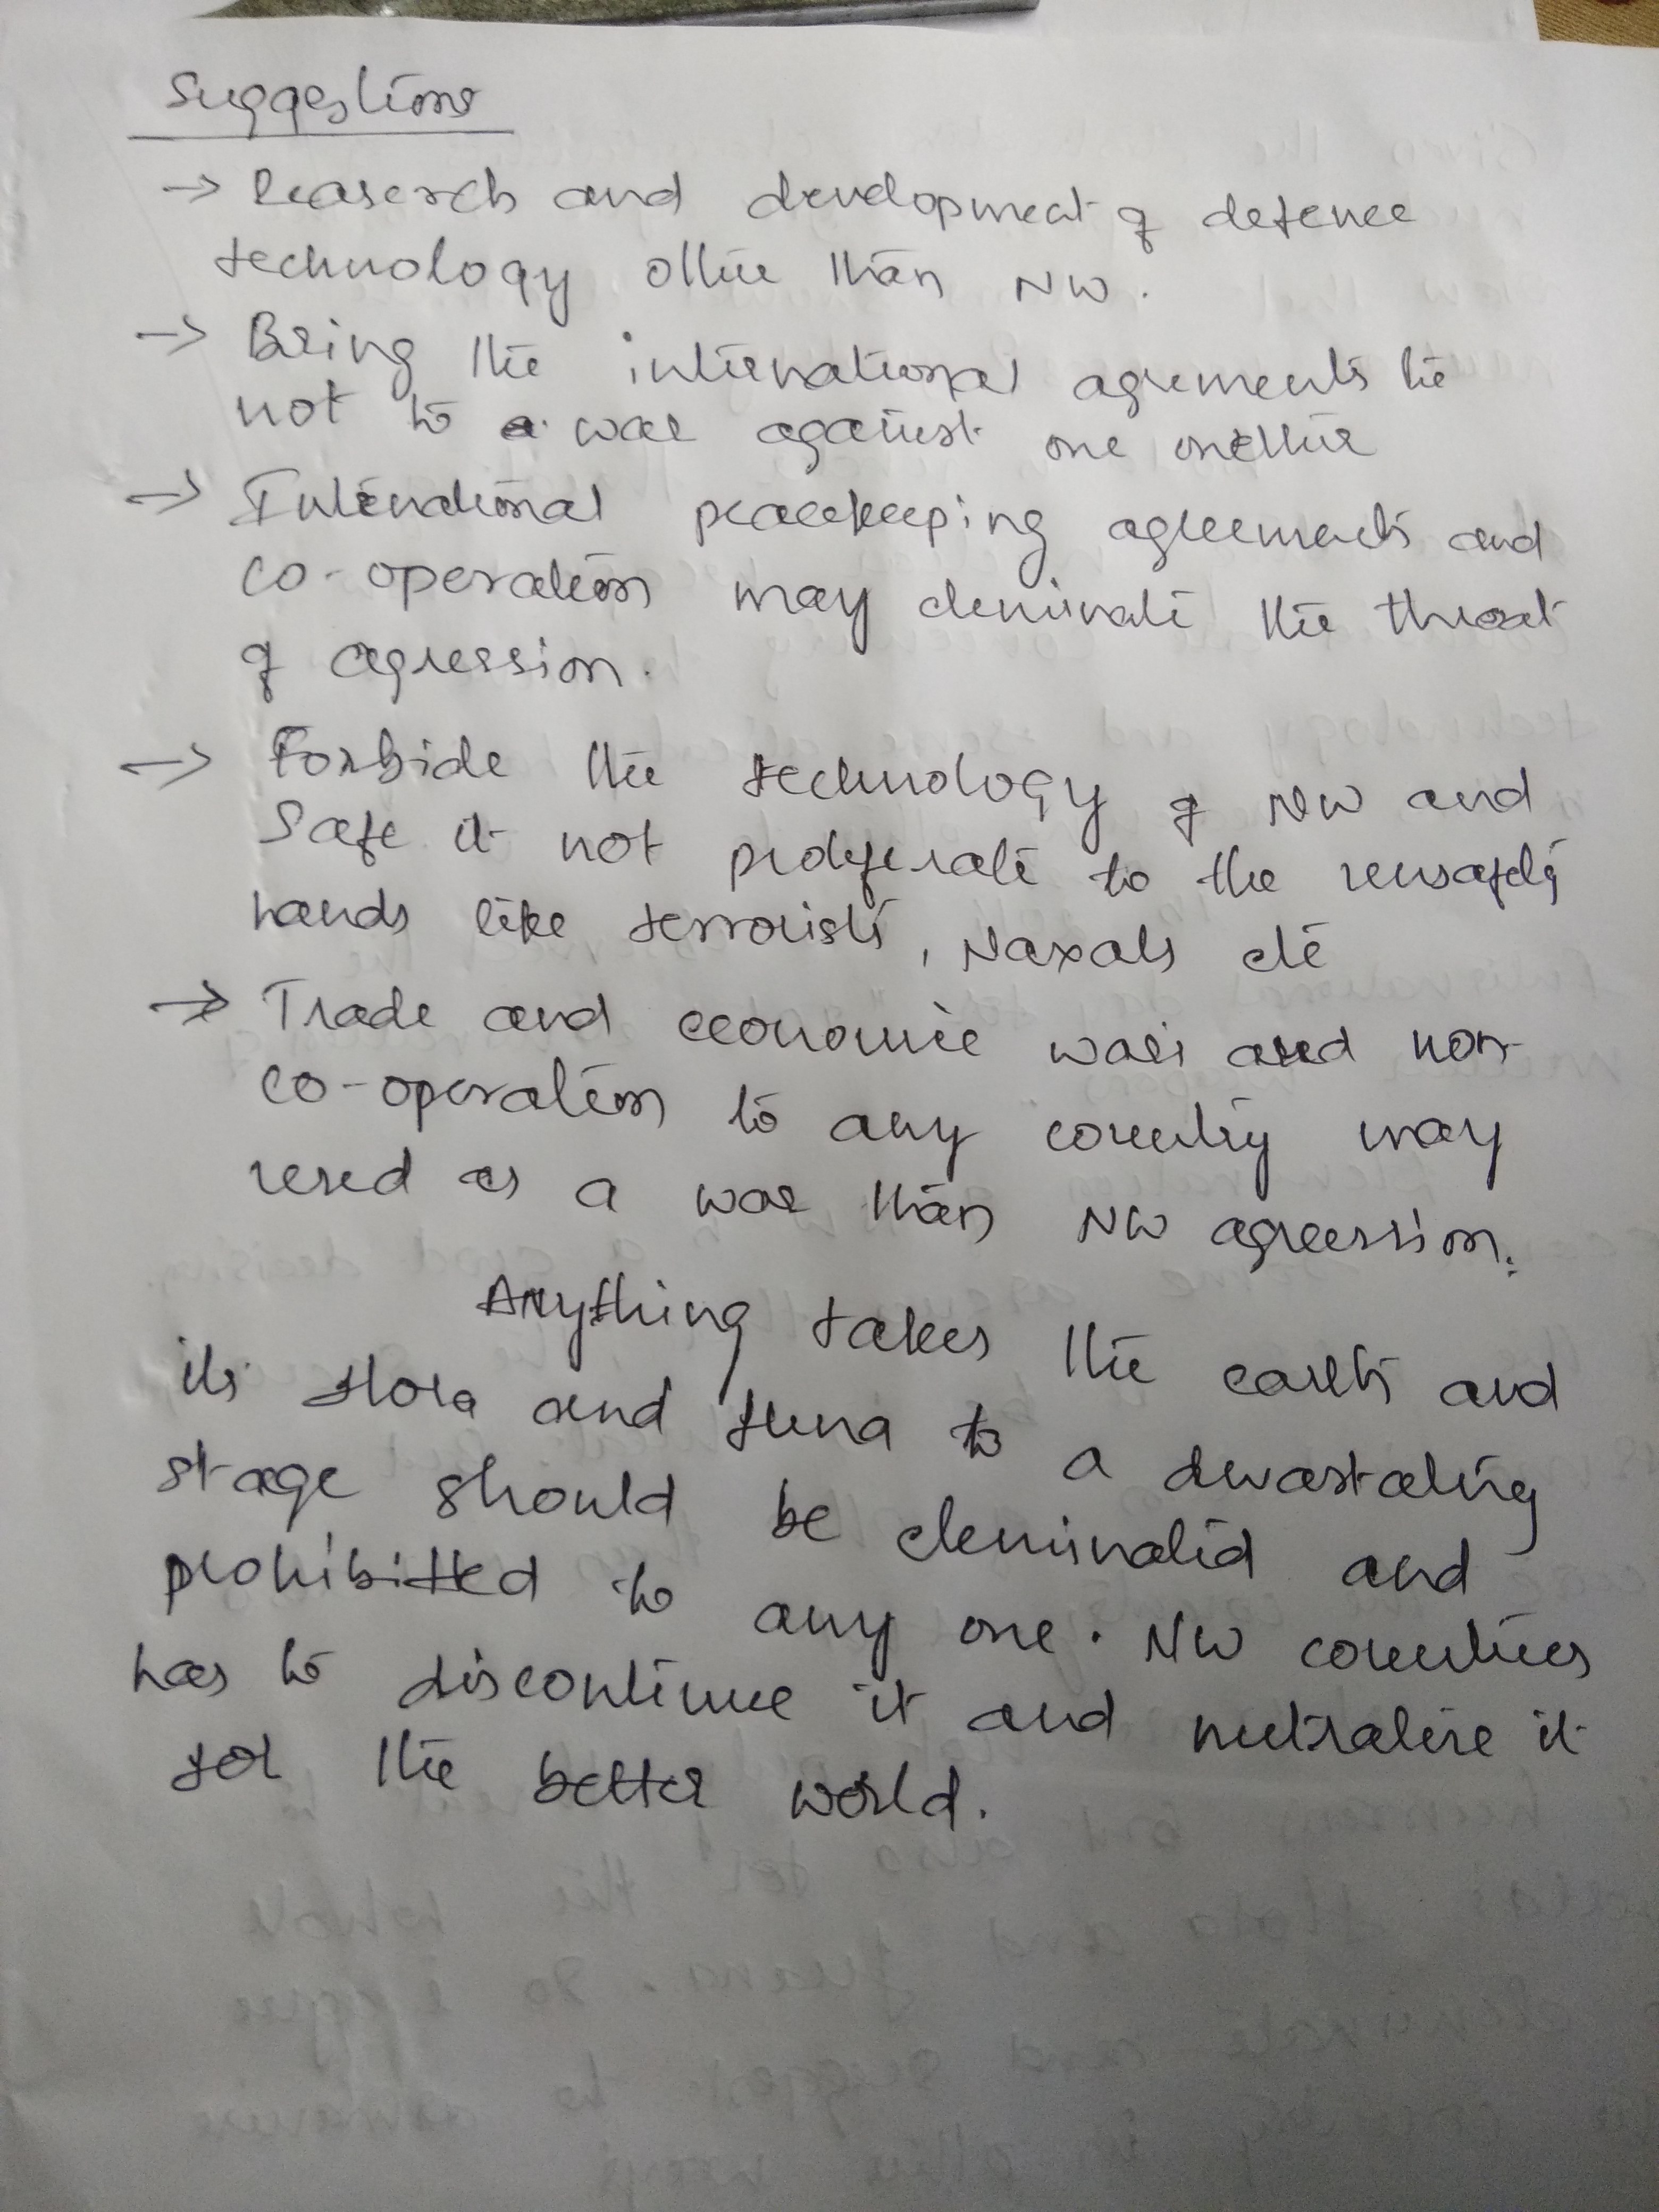 Suggestions
→ Reaserch and development of defence
technology other than NW.
→ Bring the international agrements
not to war against one onether
→ International peacekeeping agreements and
co-operation may eleminate the threat
of agression.
→ Forbide the technology of NW and
Safe it not proleferate to the
hands like terrorists, Naxals etc
→ Trade and economic wars and non-
co-operation to any country may
used as a war than NW agreession.
Anything takes the earth and
its flora and funa to a devastating
stage should be eleminated and
prohibitted to any one. NW countries
has to discontinue it and nutralise it
for the better world.